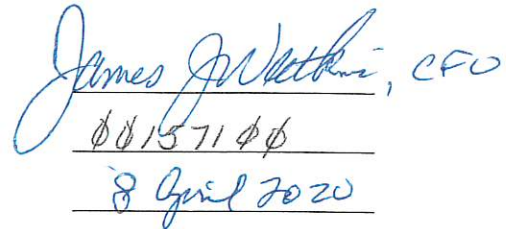 James J Watkins, CFO
00157100
8 April 2020